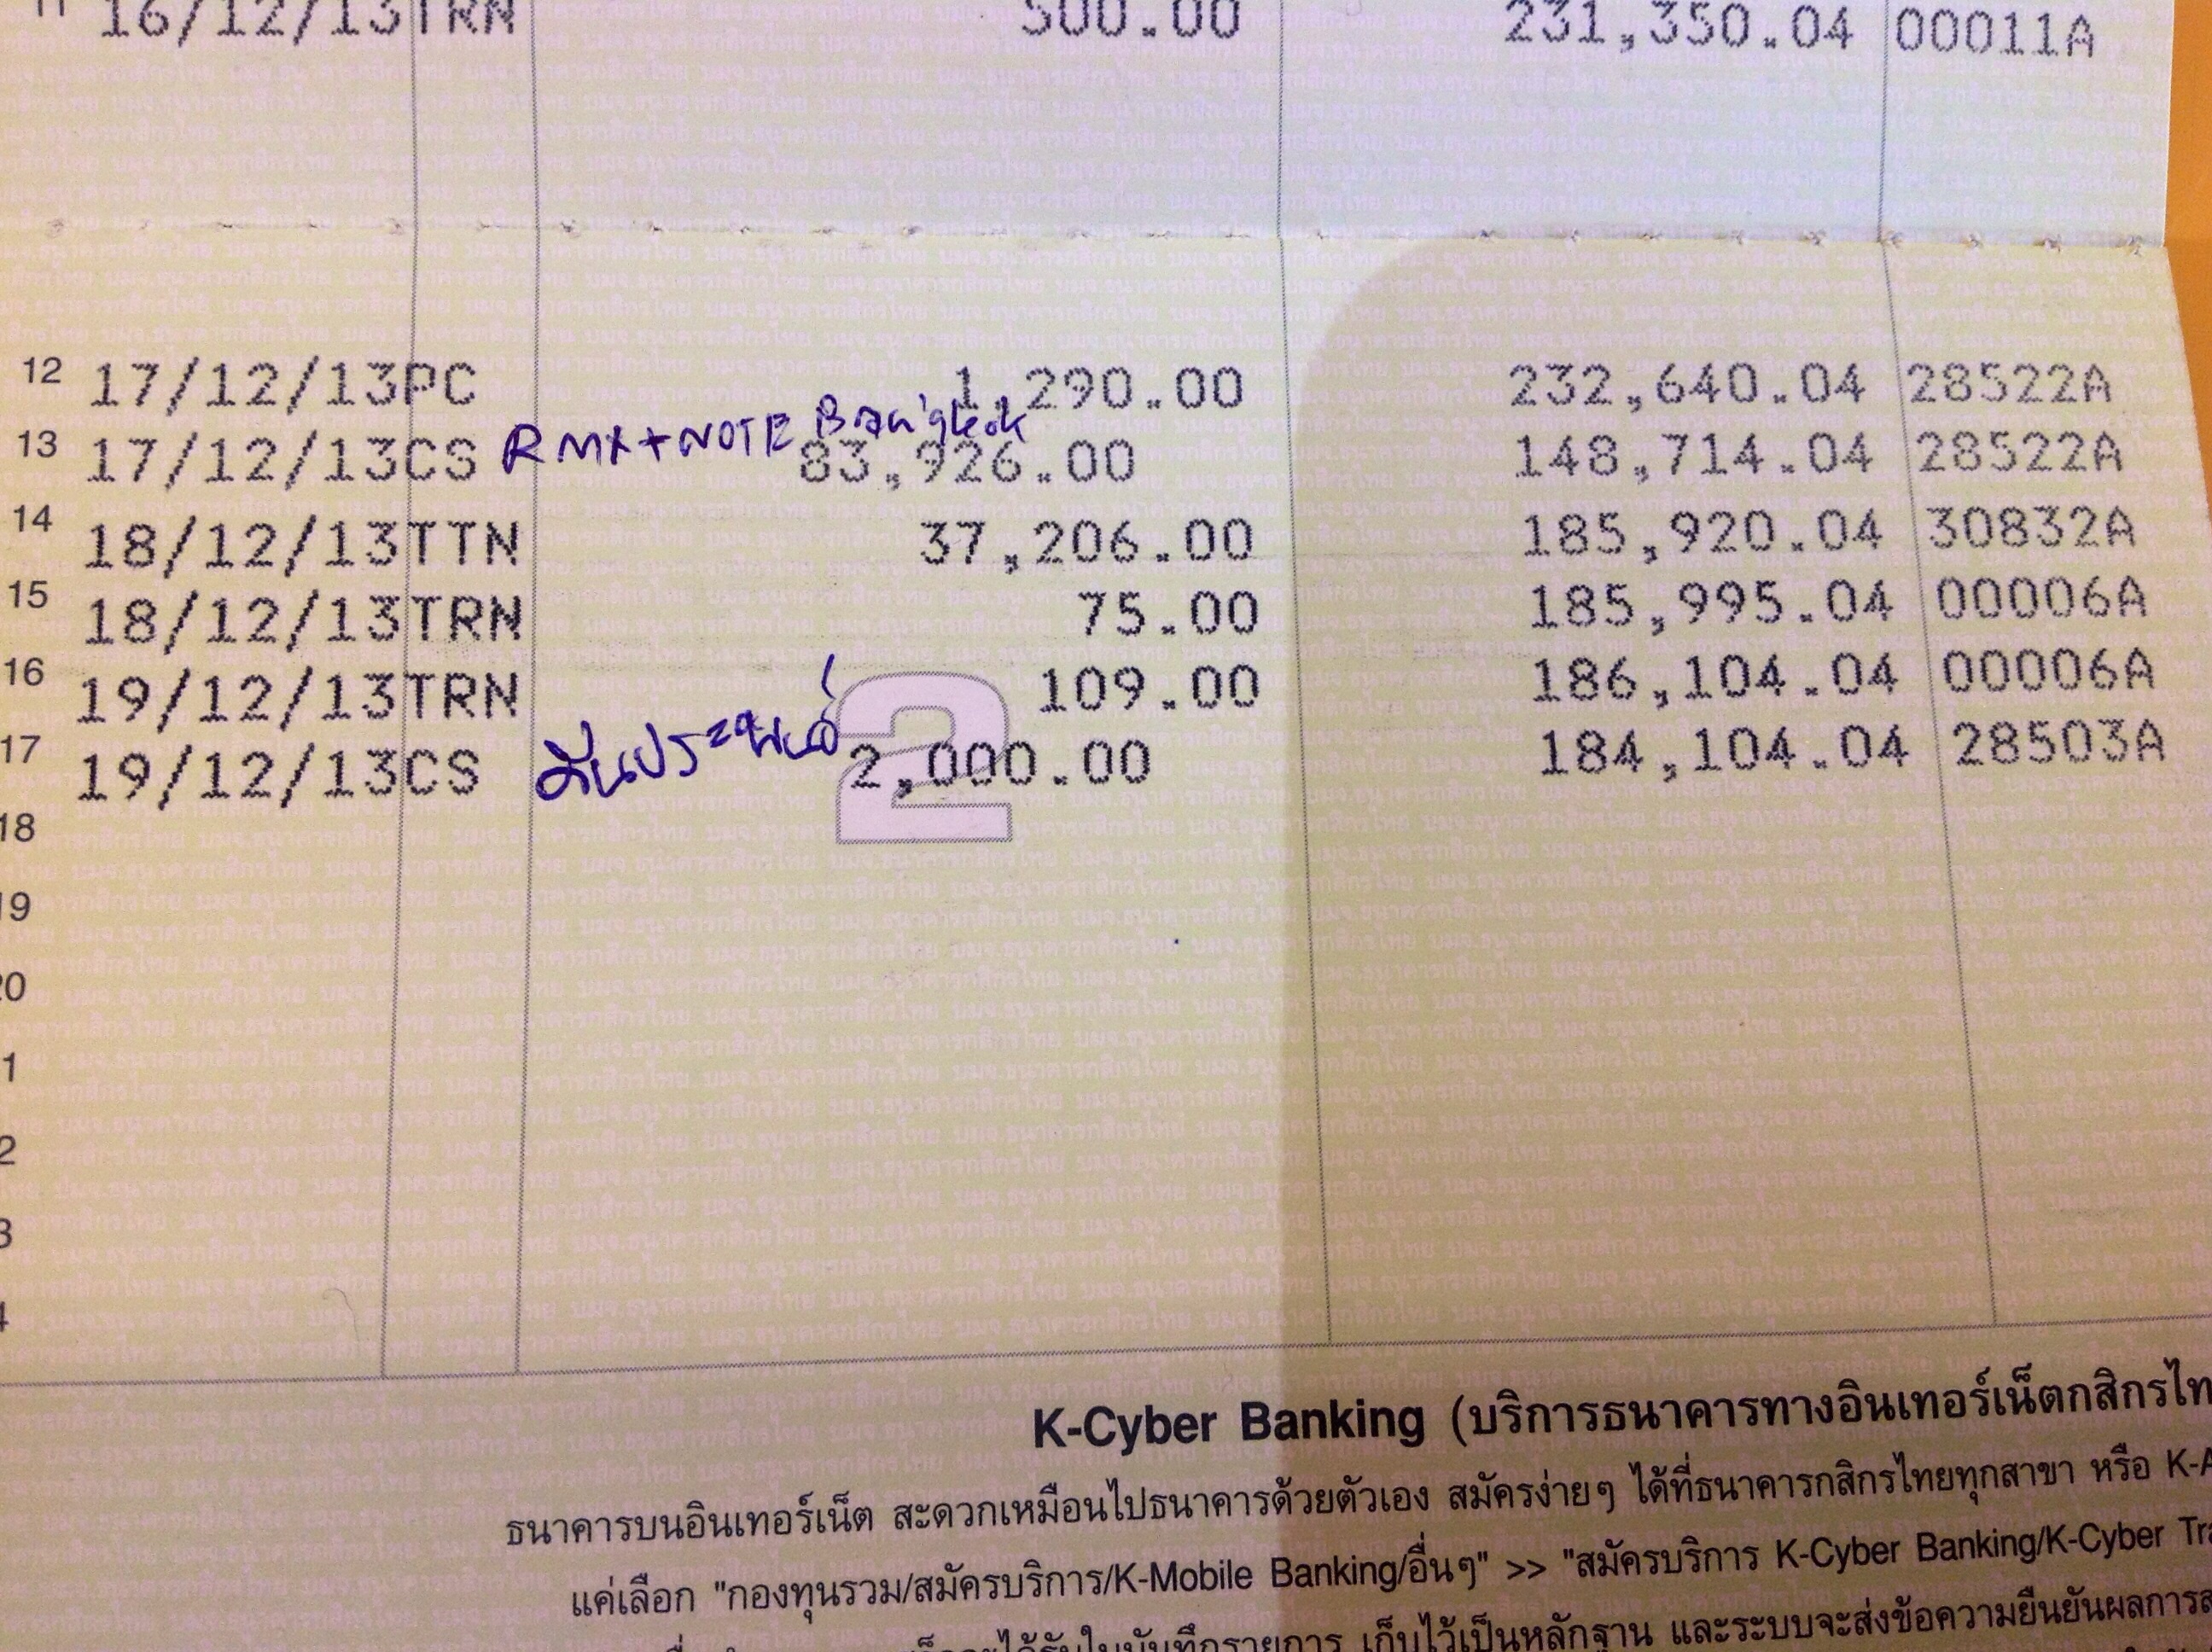 16/12/13 TRN 500.00 231,350.04 00011A
12 17/12/13 PC 1,290.00 232,640.04 28522A
RMX+NOTE Bangkok
13 17/12/13 CS 83,926.00 148,714.04 28522A
14 18/12/13 TTN 37,206.00 185,920.04 30832A
15 18/12/13 TRN 75.00 185,995.04 00006A
16 19/12/13 TRN 109.00 186,104.04 00006A
17 19/12/13 CS 2,000.00 184,104.04 28503A
2
18
19
20
1
2
3
4
K-Cyber Banking (บริการธนาคารทางอินเทอร์เน็ตกสิกรไท
ธนาคารบนอินเทอร์เน็ต สะดวกเหมือนไปธนาคารด้วยตัวเอง สมัครง่ายๆ ได้ที่ธนาคารกสิกรไทยทุกสาขา หรือ K-A
แค่เลือก "กองทุนรวม/สมัครบริการ/K-Mobile Banking/อื่นๆ" >> "สมัครบริการ K-Cyber Banking/K-Cyber Tra
เก็บไว้เป็นหลักฐาน และระบบจะส่งข้อความยืนยันผลการส